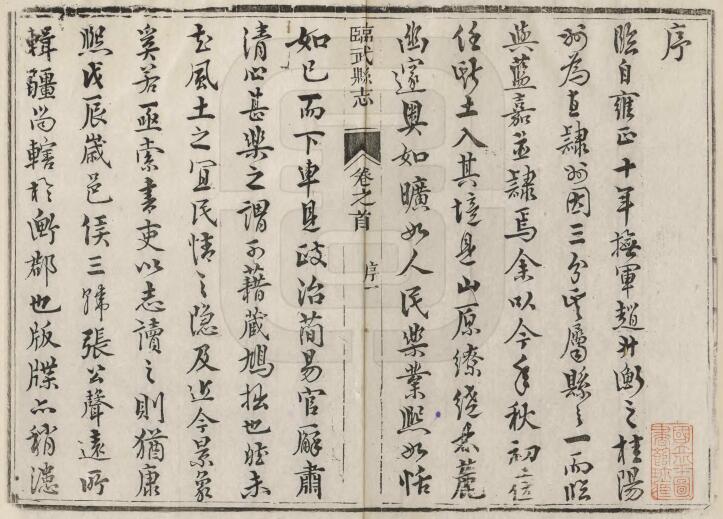 序
臨自雍正十年撫軍趙升衡之桂陽
州為直隸州因三分其屬縣之一而臨
與藍嘉並隸焉余以今年秋初莅
任斯土入其境見山原繚繞秀麗
幽邃奧如曠如人民樂業熙如恬
臨武縣志 卷之首 序一
如已而下車見政治簡易官廨肅
清心甚樂之謂可藉藏鳩拙也惟未
知風土之宜民情之隱及近今景象
奚若亟索書吏以志讀之則猶康
熙戊辰歲邑侯三韓張公聲遠所
輯疆尚轄於衡郡也版牒亦稍漶